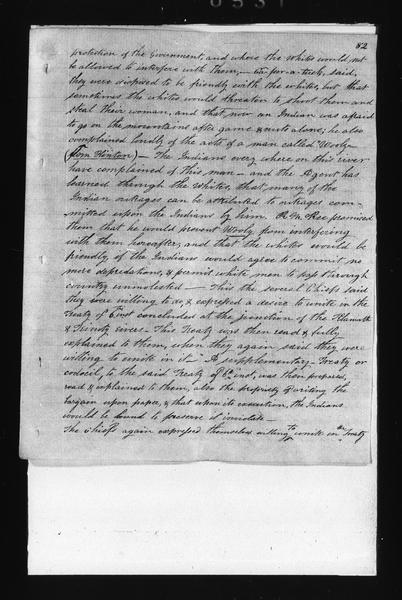 82
protection of the Government, and where the whites would not
be allowed to interfere with them,
they were disposed to be friendly with the whites, but that
sometimes the whites would threaten to shoot them and
steal their women, and that now an Indian was afraid
to go on the mountains after game & nuts alone, he also
complained loudly of the acts of a man called Wooly
(Tom Hinton) — The Indians every where on this river
have complained of this man — and the Agent has
learned through the Whites, that many of the
Indian outrages can be attributed to outrages com-
mitted upon the Indians by him. R. McKee promised
them that he would prevent Wooly from interfering
with them hereafter, and that the whites would be
friendly, if the Indians would agree to commit no
more depredations, & permit white men to pass through
country unmolested — This the several Chiefs said
they were willing to do, & expressed a desire to unite in the
Treaty of concluded at the junction of the Klamath
& Trinity rivers — This Treaty was then read & fully
explained to them, when they again said they were
willing to unite in it — A supplementary Treaty or
codocil, to the said Treaty of inst, was then prepared,
read & explained to them, also the propriety of writing the
bargain upon paper, & that upon its execution, the Indians
would be bound to preserve it inviolate —
The Chiefs again expressed themselves willing to unite in the Treaty